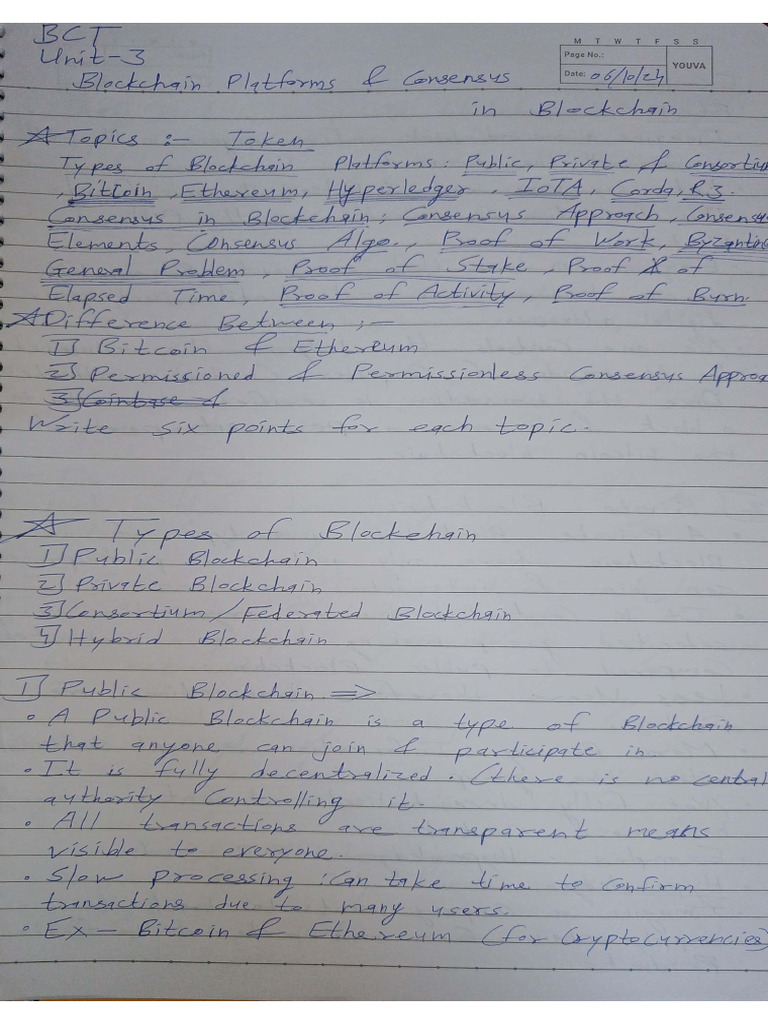 BCT
Unit-3
M T W T F S S
Page No.:
Date: 06/10/24
YOUVA
Blockchain Platforms & Consensus
in Blockchain
Topics :- Token
Types of Blockchain Platforms: Public, Private & Consortium
, Bitcoin, Ethereum, Hyperledger, IoTA, Corda, R3.
Consensus in Blockchain; Consensus Approach, Consensus
Elements, Consensus Algo., Proof of Work, Byzantine
General Problem, Proof of Stake, Proof of
Elapsed Time, Proof of Activity, Proof of Burn.
Difference Between :-
1] Bitcoin & Ethereum
2] Permissioned & Permissionless Consensus Approa
3] Coinbase &
Write six points for each topic.
Types of Blockchain
1] Public Blockchain
2] Private Blockchain
3] Consortium/Federated Blockchain
4] Hybrid Blockchain
1] Public Blockchain =>
• A Public Blockchain is a type of Blockchain
that anyone can join & participate in.
• It is fully decentralized. (there is no central
authority Controlling it.
• All transactions are transparent means
visible to everyone.
• Slow processing : Can take time to confirm
transactions due to many users.
• Ex - Bitcoin & Ethereum (for Cryptocurrencies)